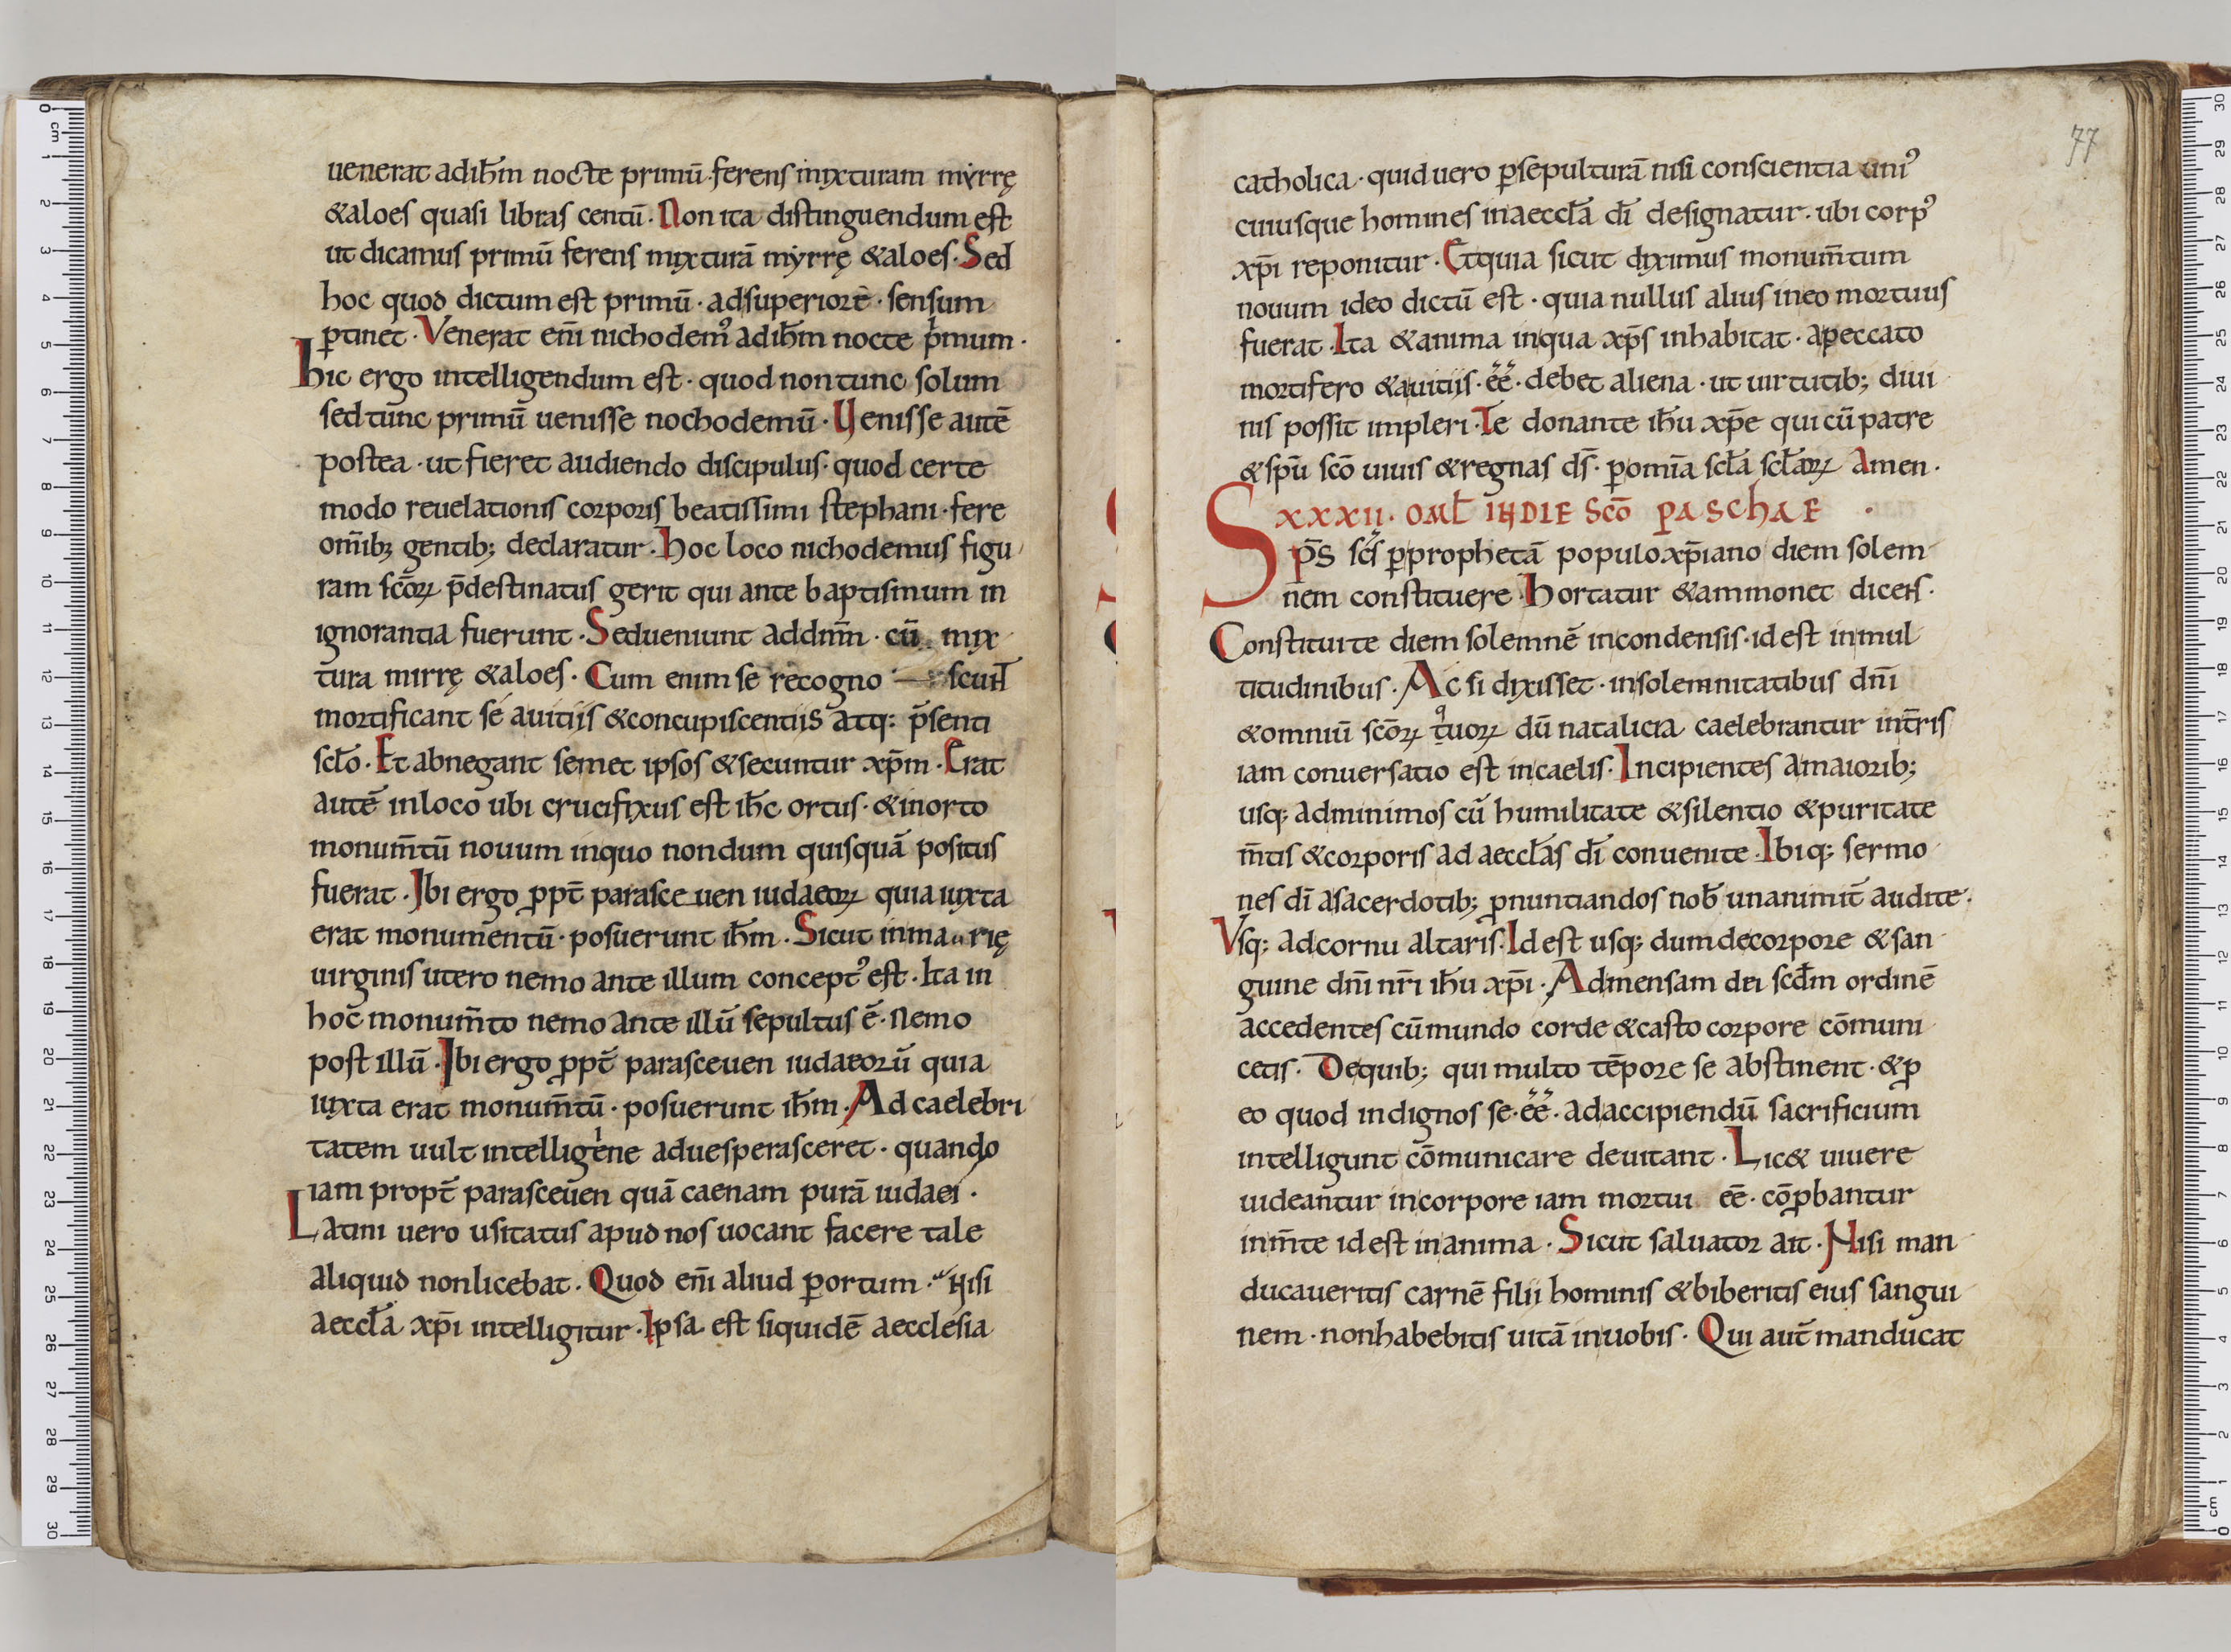 uenerat adih̄m nocte primū· ferens mixturam mẏrrę
&aloes quasi libras centū· Non ita distinguendum est
ut dicamus primū ferens mixturā mẏrrę &aloes· Sed
hoc quod dictum est primū· adsuperiorē· sensum
p̱tinet· Venerat em̄ nichodem᾿ adih̄m nocte pͥmum·
hic ergo intelligendum est· quod non tunc solum
sed tunc primū uenisse nochodemū· Uenisse autē
postea· ut fieret audiendo discipulus· quod certe
modo reuelationis corporis beatissimi stephani· fere
om̄ib; gentib; declaratur· hoc loco nichodemus figu
ram sc̄oꝝ p̄destinatus gerit qui ante baptismum in
ignorantia fuerunt· Sedueniunt addnm̄· cū mix
tura mirrę &aloes· Cum enim se recogno scunt̄
mortificant se auitiis &concupiscentiis atq: p̄senti
scło· Et abnegant semet ipsos &secuntur xp̄m· Erat
autē inloco ubi crucifixus est ih̄c ortus· &inorto
monum̄tū nouum inquo nondum quisquā positus
fuerat· Ibi ergo ꝓpt̄ parasce uen iudaeoꝝ quia iuxta
erat monumentū· posuerunt ih̄m· Sicut inma rię
uirginis utero nemo ante illum concept᾿ est· Ita in
hoc monum̄to nemo ante illū sepultus ē· Nemo
post illū· Ibi ergo ꝓpt̄ parasceuen iudaeorū quia
iuxta erat monum̄tū· posuerunt ih̄m· Ad caelebri
tatem uult intelligeͥne aduesperasceret· quando
iam propt̄ parasceuen quā caenam purā iudaei·
Latini uero usitatus apud nos uocant facere tale
aliquid nonlicebat· Quod em̄ aliud ꝑortum· Nisi
aeccła xp̄i intelligitur· Ipsa est siquidē aecclesia
77
catholica· quid uero ꝑsepulturā nisi conscientia uni᾿
cuiusque homines inaeccła dī designatur· ubi corp᾿
xp̄i reponitur· Et quia sicut diximus monum̄tum
nouum ideo dictū est· quia nullus alius ineo mortuus
fuerat· Ita &anima inqua xp̄s inhabitat· apeccato
mortifero &auitiis· ēē· debet aliena· ut uirtutib; diui
nis possit impleri· Te donante ih̄u xp̄e qui cū patre
&spū scō uiuis &regnas ds̄· ꝑom̄ia scła scłaꝝ Amen·
XXXII· OML̄ IN DIE SCŌ PASCHAE
Sp̄s sc̄s ꝑprophetā populo xp̄iano diem solem
nem constituere hortatur &ammonet dicens·
Constituite diem solemnē incondensis· id est inmul
titudinibus· Ac si dixisset· insolemnitatibus dn̄i
&omniū sc̄oꝝ tuoꝝ dū natalicia caelebrantur int̄ris
iam conuersatio est incaelis· Incipientes amaiorib;
usq; adminimos cū humilitate &silentio &puritate
m̄tis &corporis ad aeccłas dī conuenite· Ibiq; sermo
nes dī asacerdotib; ꝓnuntiandos nob̄ unanimit̄ audite·
Vsq; adcornu altaris· Id est usq; dum decorpore &san
guine dn̄i nr̄i ih̄u xp̄i· Admensam dei scd̄m ordinē
accedentes cūmundo corde &casto corpore cōmuni
cetis· Dequib; qui multo tēpore se abstinent· &ꝑ
eo quod indignos se· ēē· adaccipiendū sacrificium
intelligunt cōmunicare deuitant· Lic& uiuere
uideantur incorpore iam mortui ēē· cōꝓbantur
inm̄te id est inanima· Sicut saluator ait· Nisi man
ducaueritis carnē filii hominis &biberitis eius sangui
nem· nonhabebitis uitā inuobis· Qui aut̄ manducat